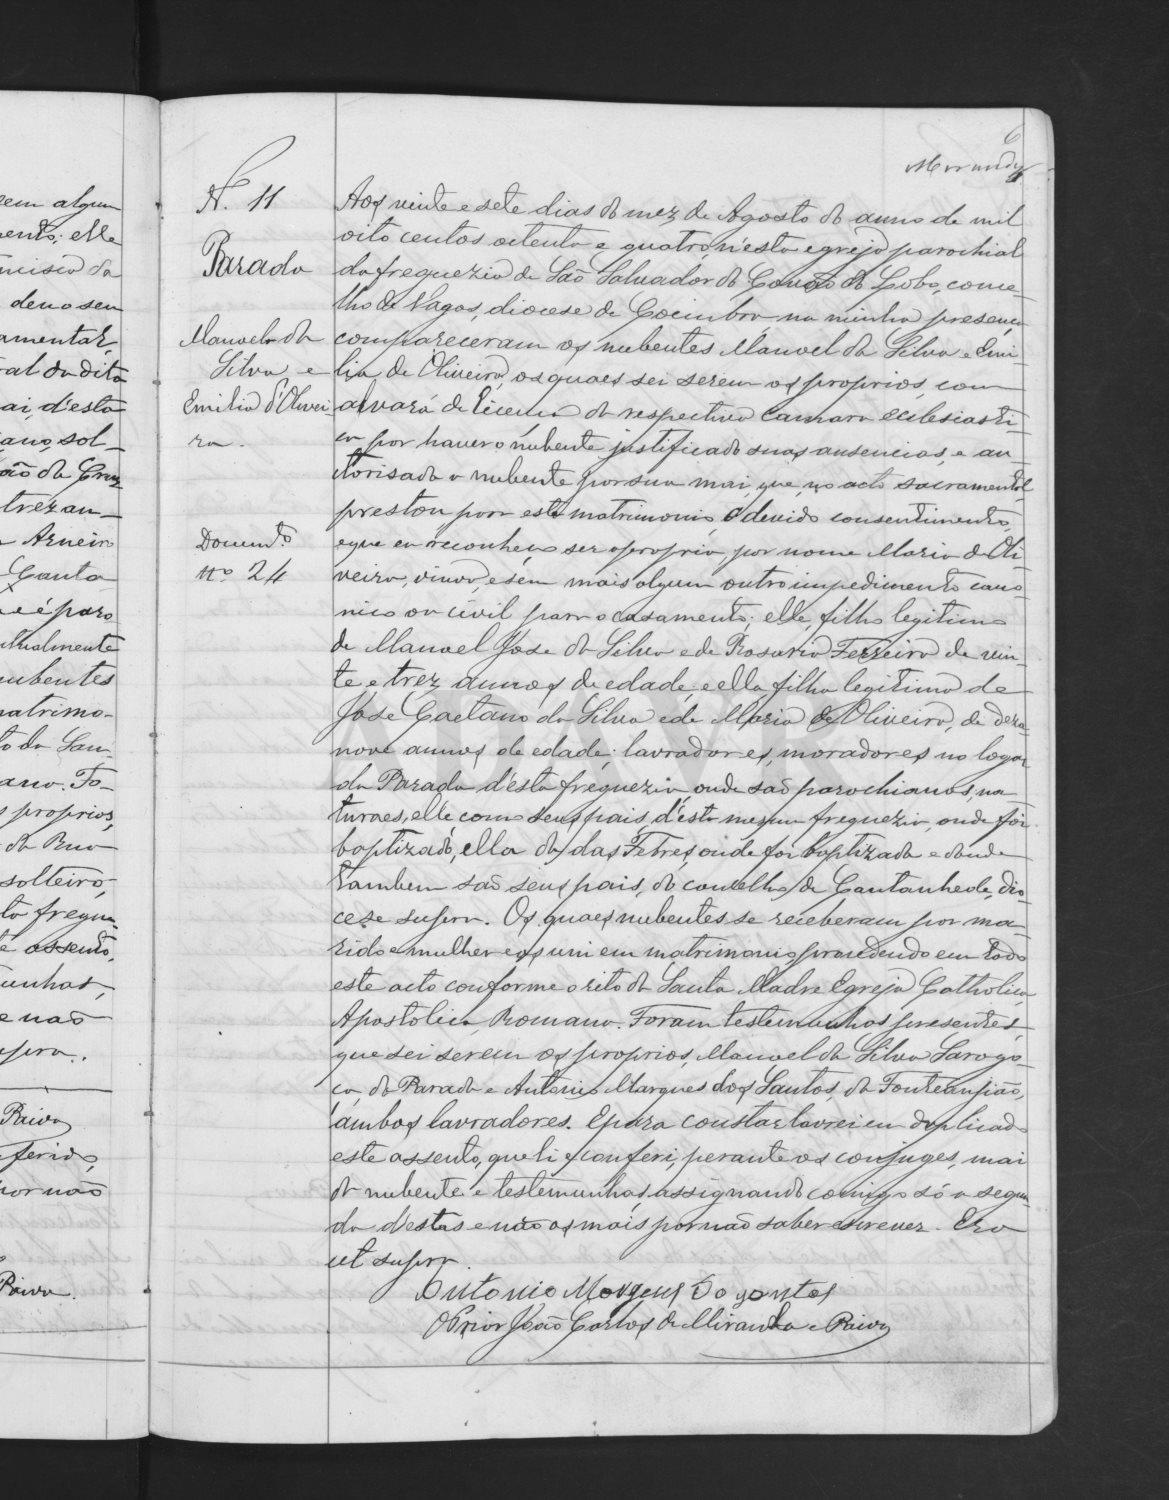 6
N. 11
Parada
Manuel da
Silva e
Emilia d'Olivei
ra.
Docum.to
nº 24
Aos vinte e sete dias do mez de Agosto do anno de mil
oito centos oitenta e quatro, n'esta egreja parochial
da freguezia de São Salvador do Covão do Lobo, conce-
lho de Vagos, diocese de Coimbra na minha presença
compareceram os nubentes Manoel da Silva e Emi
lia de Oliveira, os quaes sei serem os proprios, com
alvará de licença da respectiva Camara ecclesiasti-
ca por haver o nubente justificado suas ausencias, e au
torisada a nubente por sua mai, que, no acto sacramental
prestou para este matrimonio o devido consentimento,
e que eu reconheço ser a propria, por nome Maria de Oli-
veira, viuva, e sem mais algum outro impedimento cano-
nico ou civil para o casamento; elle, filho legitimo
de Manoel José da Silva e de Rosaria Ferreira de vin-
te e trez annos de edade, e ella filha legitima de
José Caetano da Silva e de Maria de Oliveira, de deza-
nove annos de edade; lavradores, moradores no logar
da Parada d'esta freguezia onde são parochianos, na
turaes, elle como seus pais, d'esta mesma freguezia, onde foi
baptizado, ella da das Febres, onde foi baptizada e donde
tambem são seus pais, do concelho de Cantanhede, dio-
cese supra. Os quaes nubentes se receberam por ma-
rido e mulher e os uni em matrimonio, procedendo em todo
este acto conforme o rito da Santa Madre Egreja Catholica
Apostolica Romana. Foram testemunhas presentes,
que sei serem os proprios, Manoel da Silva Sarago-
ça, da Parada e Antonio Marques dos Santos, da Fonte anjião,
ambos lavradores. E para constar lavrei em duplicado
este assento, que li e conferi, perante os conjuges, mai
da nubente e testemunhas assignando comigo só a segun
da d'estas e não os mais por não saber escrever. Era
ut supra
Antonio Marques dos santos
O Prior João Carlos de Miranda e Paiva